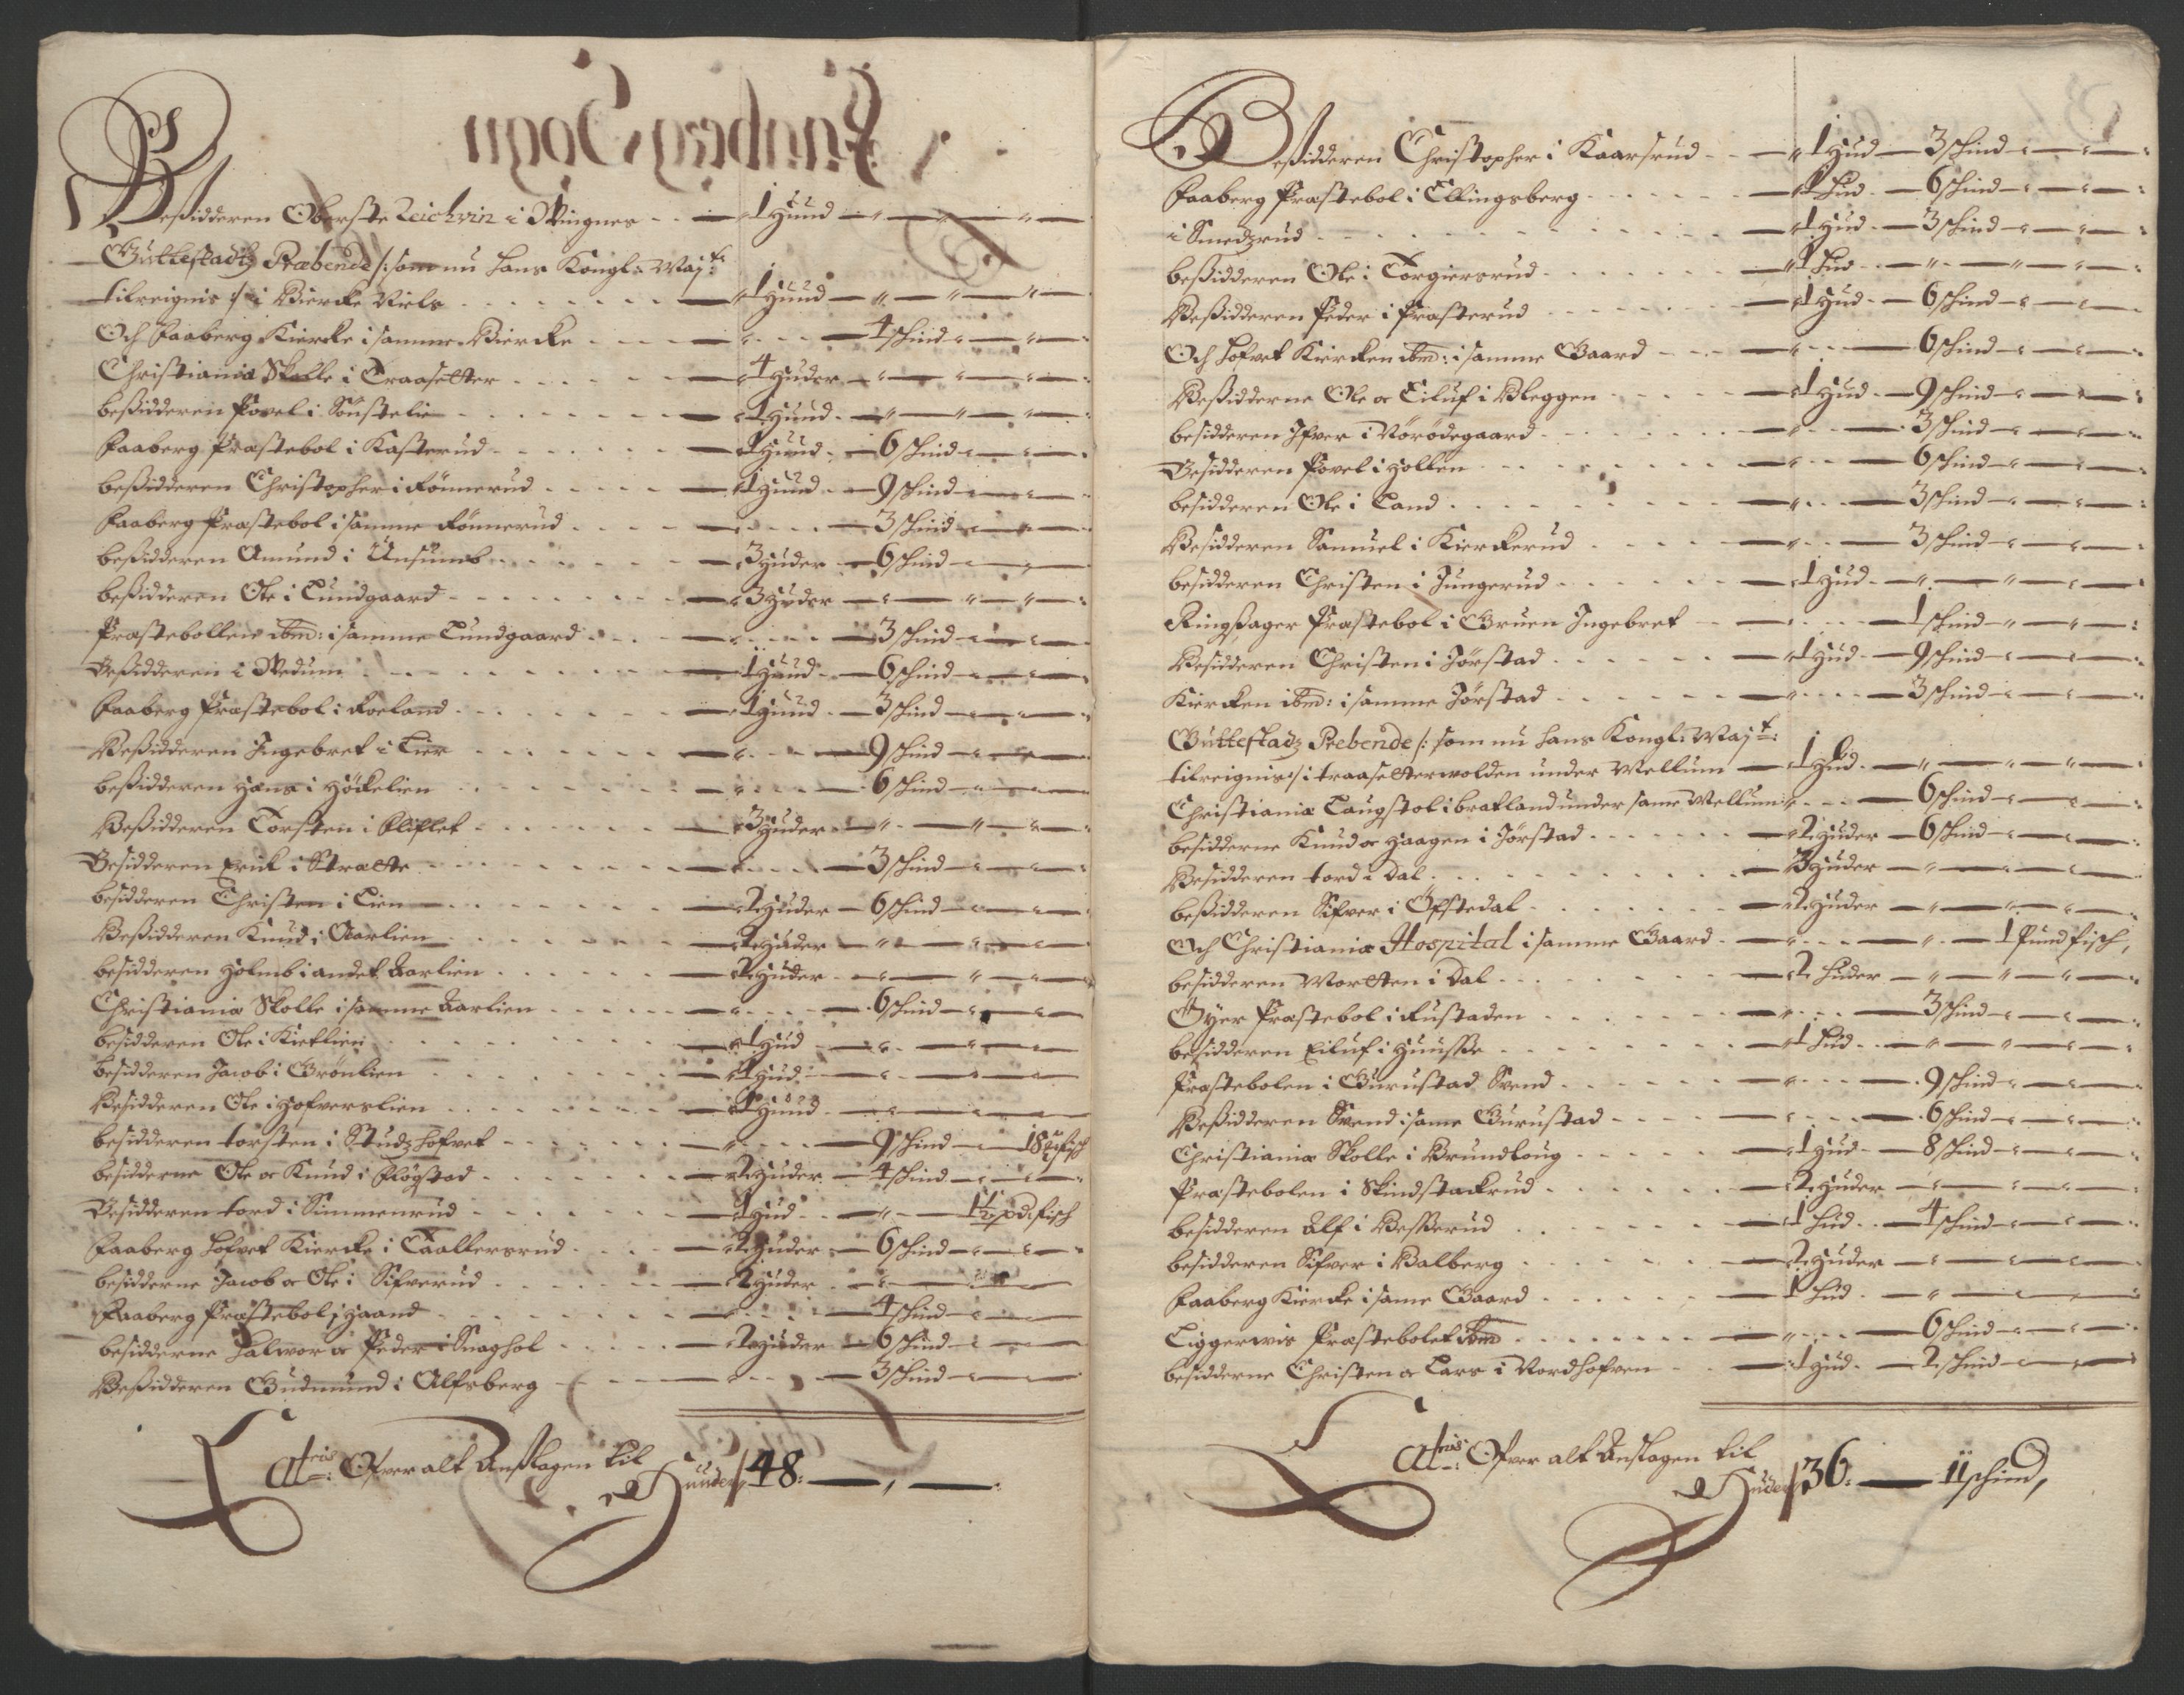 Beßidderen Oberste Zeichvin i Wingnes - - 1 Huud
Guttestadtz Præbende /: som nu hans Kongl: Majt:
tilreignis :/ i Biercke Niels - - 1 Huud
Och Faaberg Kiercke i samme Biercke - - 4 schind
Christiania Skolle i Traasetter - - 4 Huder
beßidderen Povel i Sönstelie - - 1 Huud
Faaberg Præstebol i Kasterud - - 1 Huud - 6 schind
beßidderen Christopher i Rönnerud - - 1 Huud - 9 schind
Faaberg Præstebol i samme Rönnerud - - 3 schind
beßidderen Amund i Unsumb - - 3 Huder - 6 schind
beßidderen Ole i Lundgaard - - 3 Huder
Præstebollen ibm: i samme Lundgaard - - 3 schind
Beßidderen i Wedum - - 1 Huud - 6 schind
Faaberg Præstebol i Roeland - - 1 Huud - 3 schind
Beßidderen Ingebret i Lier - - 9 schind
beßidderen Hans i Höckelien - - 6 schind
Beßidderen Torsten i Kliflet - - 3 Huder
Besidderen Erik i Strætte - - 3 schind
besidderen Christen i Lien - - 2 Huder - 6 schind
Beßidderen Knud i Aarlien - - 2 Huder
besidderen Holmb i andet Aarlien - - 2 Huder
Christiania Skolle i samme Aarlien - - 6 schind
besidderen Ole i Kietlien - - 1 Hud
besidderen Jacob i Grönlien - - 1 Hud
Besidderen Ole i Hofverslien - - 1 Huud
besidderen torsten i Studzhofvet - - 9 schind - 18 fisch
besidderne Ole oc Knud i Flögstad - - 2 Huder - 4 schind
Besidderen tord i Simmenrud - - 1 Hud - 1½ pd: fisch
Faaberg hofvet Kiercke i Taallersrud - - 2 Huder - 6 schind
besidderne Jacob oc Ole i Sifverud - - 2 Huder
Faaberg Præstebol i Haand - - 4 schind
besidderne Halvor oc Peder i Suaghol - - 2 Huder - 6 schind
Beßidderen Gudmund i Alfsberg - - 3 schind
Latris: Ofver alt Anslagen til
Huuder 48:
Beßidderen Christopher i Kaarsrud - - 1 Hud - 3 schind
Faaberg Præstebol i Ellingsberg - - 1 Hud - 6 schind
i Smedzrud - - 1 Hud - 3 schind
beßidderen Ole i Torgiersrud - - 1 Hud
Beßidderen Peder i Præsterud - - 1 Hud - 6 schind
Och hofvet Kiercken ibm: i samme Gaard - - 6 schind
Beßidderne Ole oc Eiluf i Kleggen - - 1 Hud - 9 schind
besidderen Ifver i Nörödegaard - - 3 schind
Besidderen Povel i Hollen - - 6 schind
besidderen Ole i Land - - 3 schind
Besidderen Samuel i Kierckerud - - 3 schind
besidderen Christen i Jungerud - - 1 Hud
Ringsager Præstebol i Gruen Ingebret - - 1 schind
Besidderen Christen i Jörstad - - 1 Hud - 9 schind
Kiercken ibm: i samme Jörstad - - 3 schind
Guttestadz Prebende /: som nu hans Kongl: Majt:
tilreignis :/ i traasetterwolden under Mellum - 1 Hud
Christianiæ Laugstol i bratland under same Mellum - 6 schind
besidderne Knud oc Haagen i Jörstad - - 2 Huder - 6 schind
Besidderen tord i Dal - - 3 Huder
beßidderen Sifver i Öfstedal - - 2 Huder
Och Christianiæ Hospital i samme Gaard - - 1 Pund fisch,
besidderen Mortten i Dal - - 2 Huder
Öyer Præstebol i Rustaden - - 3 schind
besidderen Eiluf i Huusse - - 1 Hud
Præstebolen i Gurustad Svend - - 9 schind
Beßidderen Svend i same Gurustad - - 6 schind
Christianiæ Skolle i Brundloug - - 1 Hud - 8 schind
Præstebolen i Skindstackrud - - 2 Huder
besidderen Alf i Besserud - - 1 Hud - 4 schind
besidderen Sifver i Balberg - - 2 Huder
Faaberg Kiercke i same Gaard - - 1 Hud
Liggervis Præstebolet ibm - - 6 schind
besidderne Christen oc Lars i Nordhofven - - 1 Hud - 2 schind
Latris: Ofver alt Anslagen til
Huder 36: 11 schind,